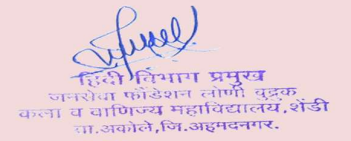 हिंदी विभाग प्रमुख
जनसेवा फौंडेशन लोणी बुद्रक
कला व वाणिज्य महाविद्यालय, शेंडी
ता.अकोले,जि.अहमदनगर.